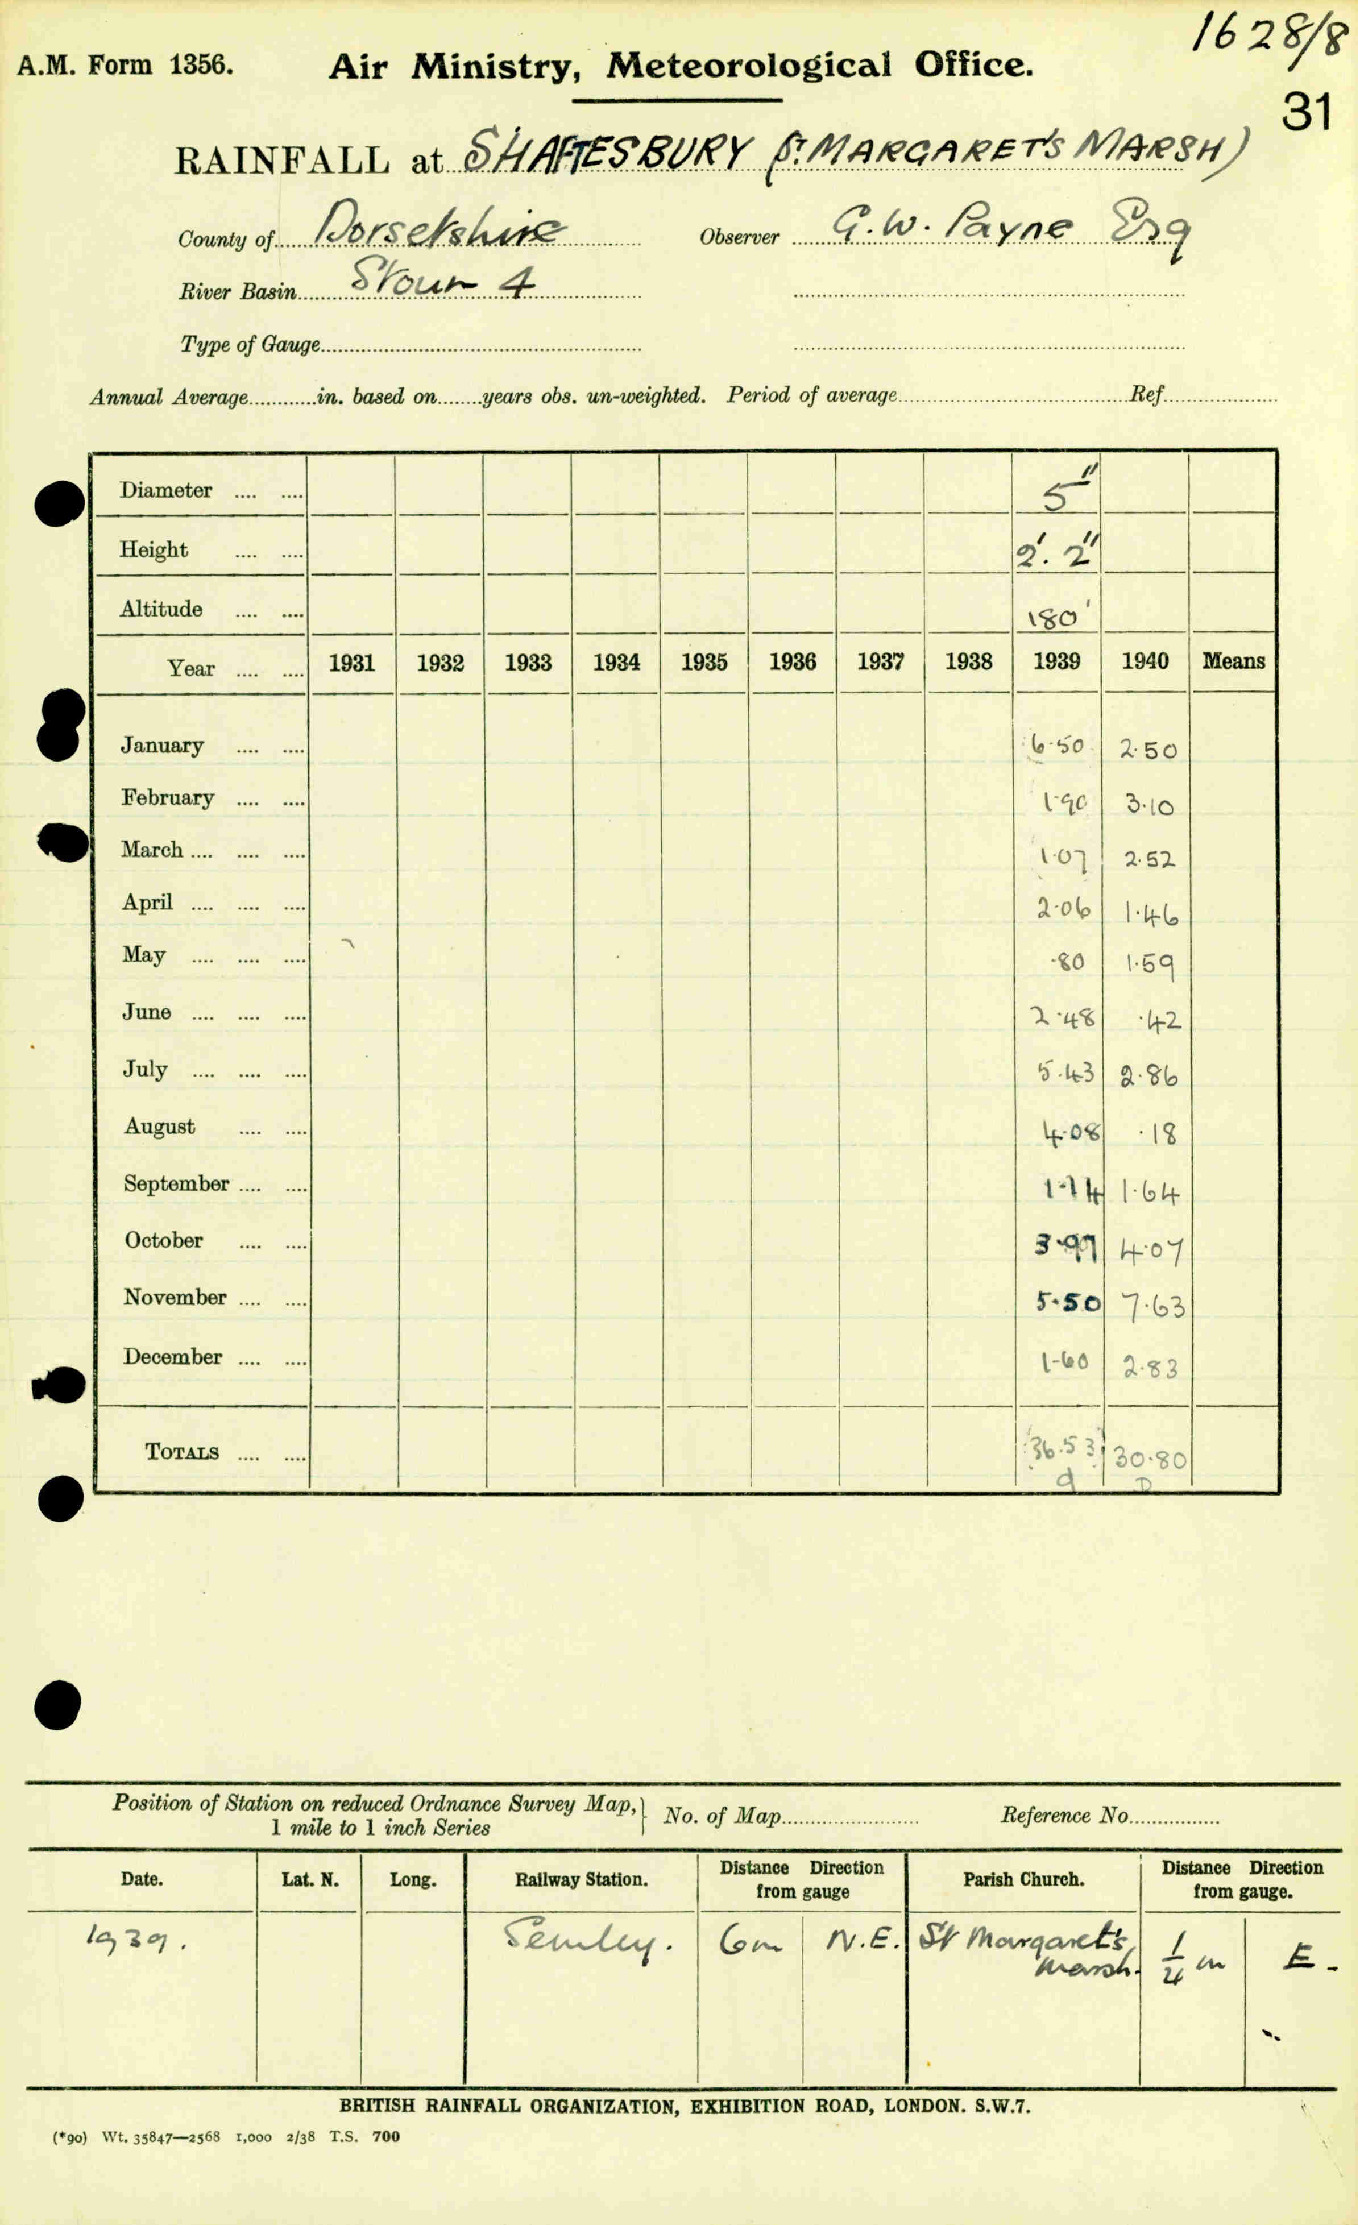 1628/8
A.M. Form 1356. Air Ministry, Meteorological Office.
31
RAINFALL at SHAFTESBURY (ST. MARGARET'S MARSH)
County of Dorsetshire Observer G.W. Payne Esq
River Basin Stour 4
Type of Gauge
Annual Average in. based on years obs. un-weighted. Period of average Ref.
Diameter 5"
Height 2'. 2"
Altitude 180'
Year 1931 1932 1933 1934 1935 1936 1937 1938 1939 1940 Means
January 6.50 2.50
February 1.90 3.10
March 1.07 2.52
April 2.06 1.46
May .80 1.59
June 2.48 .42
July 5.43 2.86
August 4.08 .18
September 1.14 1.64
October 3.97 4.07
November 5.50 7.63
December 1.60 2.83
TOTALS 36.53 30.80
Position of Station on reduced Ordnance Survey Map, 1 mile to 1 inch Series No. of Map Reference No.
Date. Lat. N. Long. Railway Station. Distance Direction from gauge Parish Church. Distance Direction from gauge.
1939. Semley. 6m N.E. St Margaret's Marsh. 1/4 m E.
BRITISH RAINFALL ORGANIZATION, EXHIBITION ROAD, LONDON. S.W.7.
(*90) Wt. 35847—2568 1,000 2/38 T.S. 700